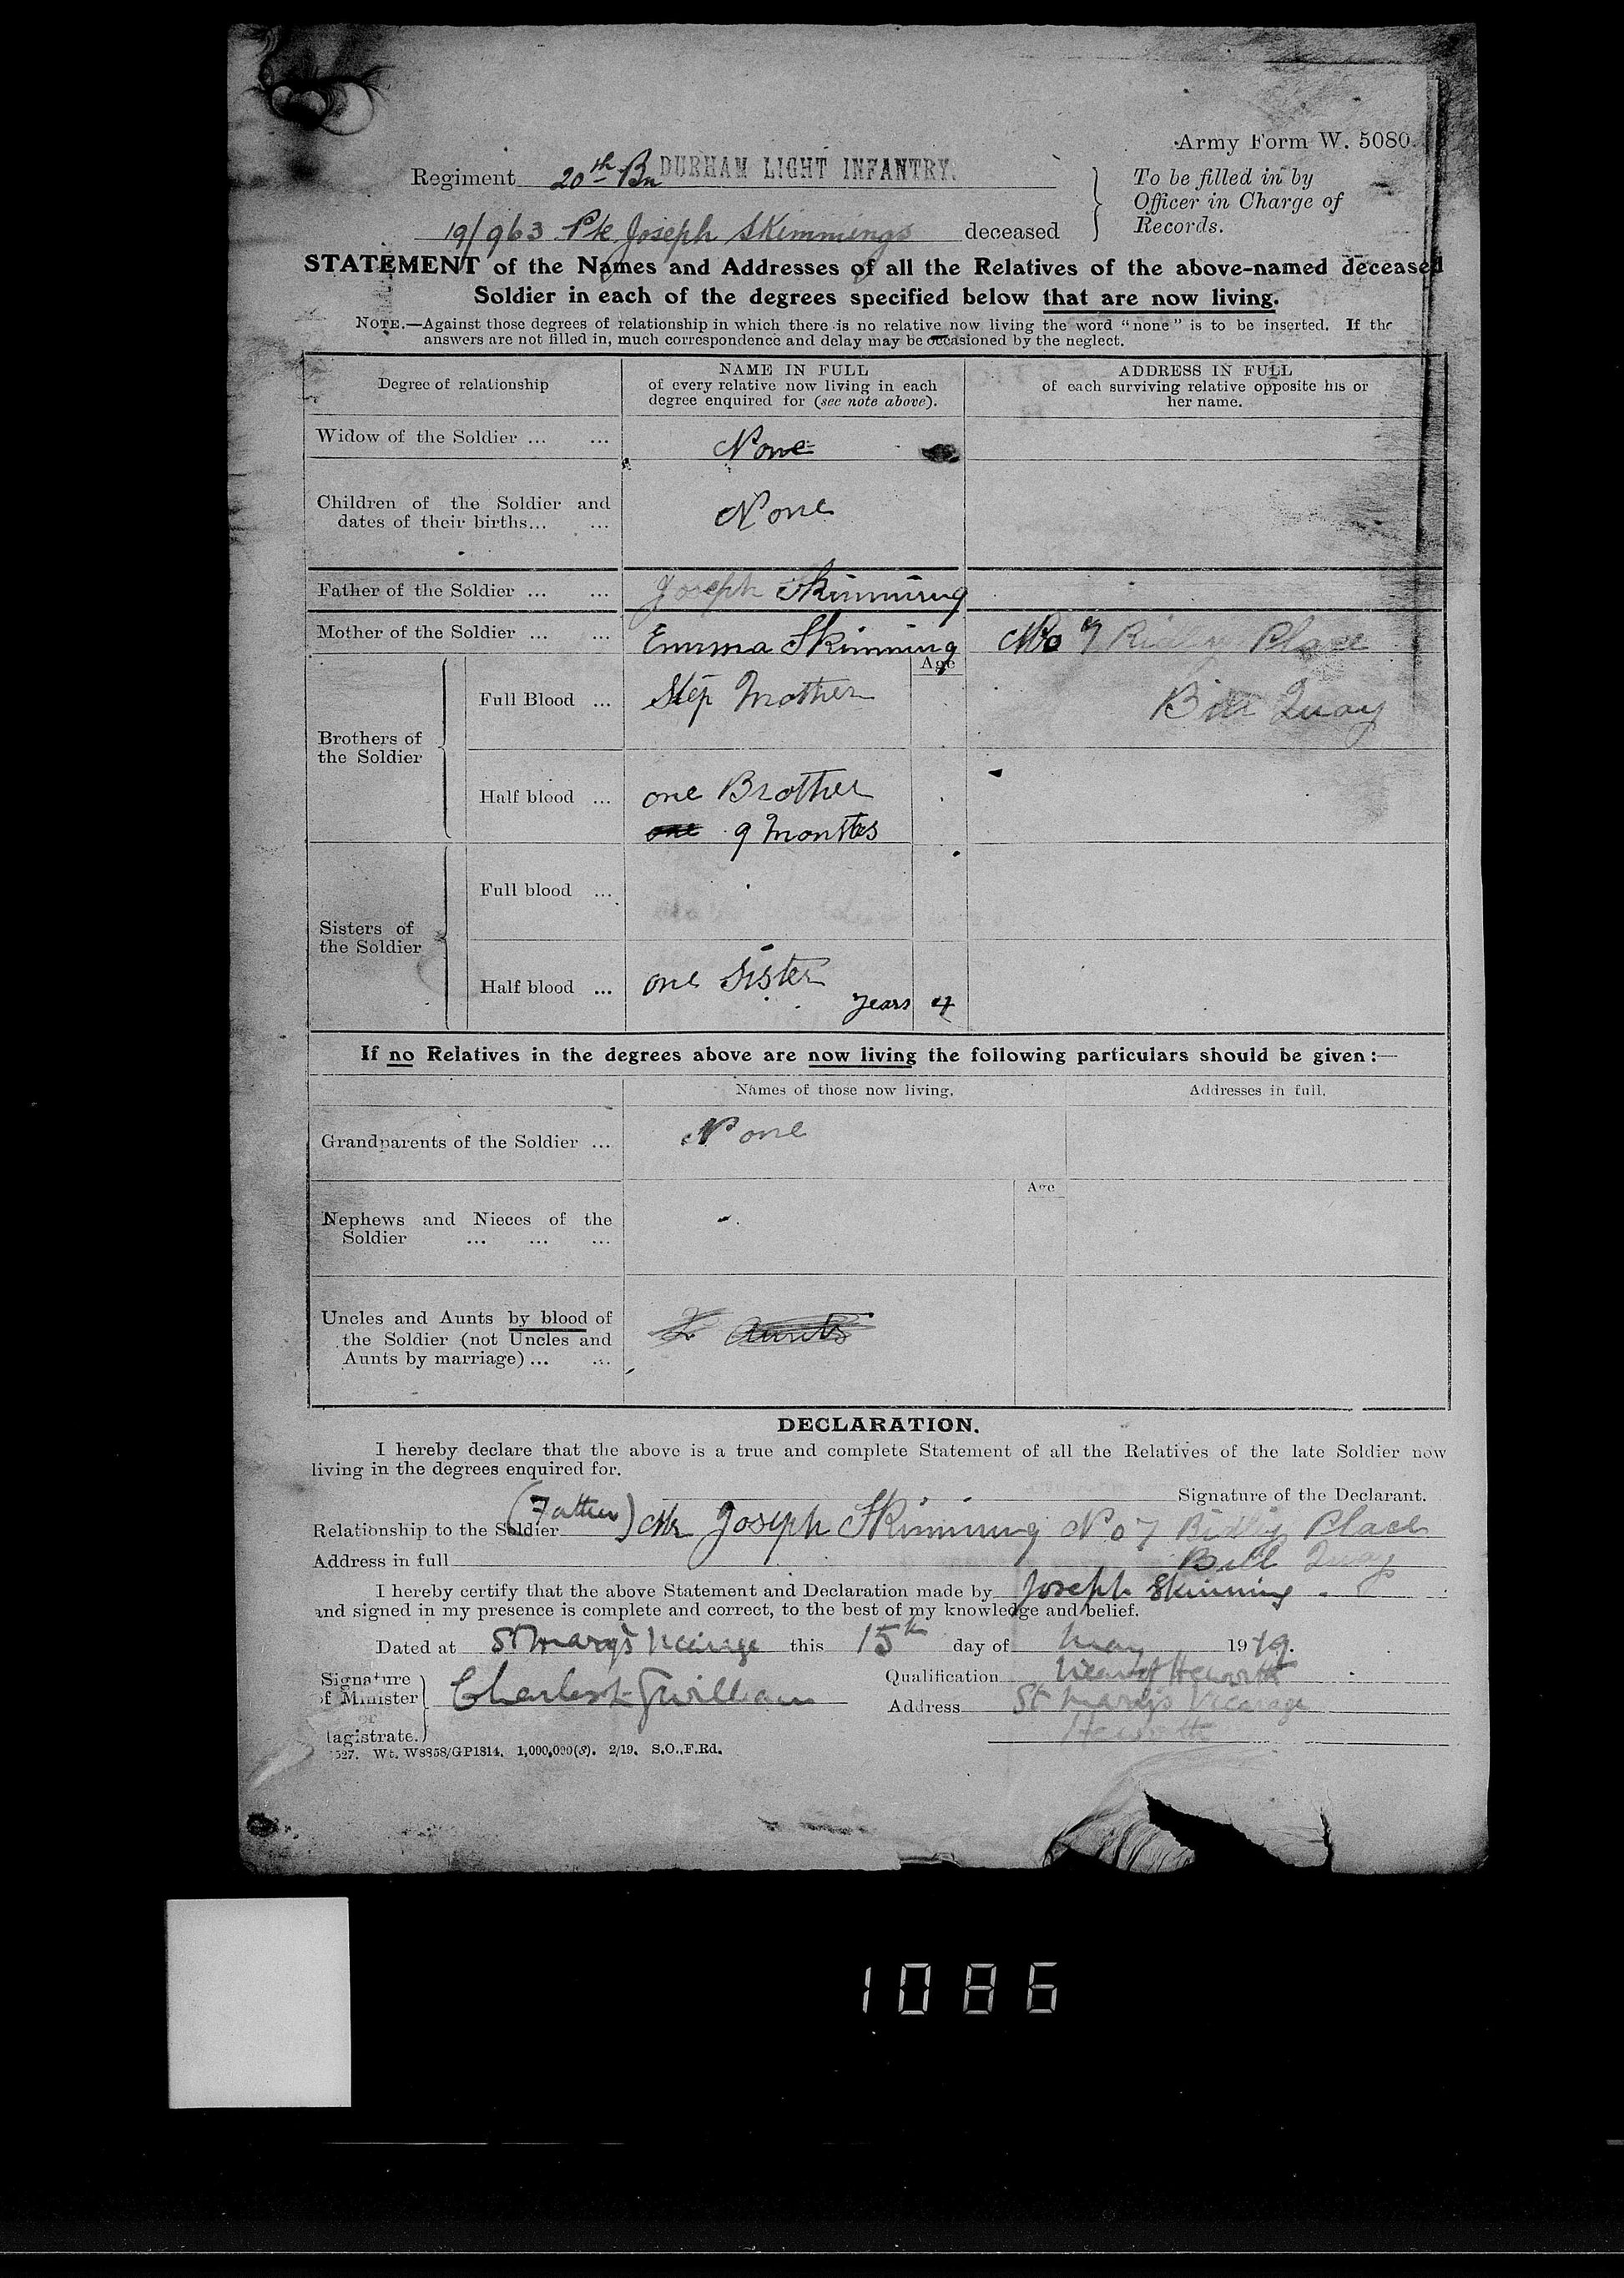 Army Form W. 5080.
Regiment 20th Bn DURHAM LIGHT INFANTRY.
To be filled in by
Officer in Charge of
Records.
19/963 Pte Joseph Skimmings deceased
STATEMENT of the Names and Addresses of all the Relatives of the above-named deceased
Soldier in each of the degrees specified below that are now living.
NOTE.—Against those degrees of relationship in which there is no relative now living the word "none" is to be inserted. If the
answers are not filled in, much correspondence and delay may be occasioned by the neglect.
Degree of relationship
NAME IN FULL
of every relative now living in each
degree enquired for (see note above).
ADDRESS IN FULL
of each surviving relative opposite his or
her name.
Widow of the Soldier ... ... None
Children of the Soldier and
dates of their births... ... None
Father of the Soldier ... ... Joseph Skimming
Mother of the Soldier ... ... Emma Skimming No 7 Ridley Place
Age
Brothers of
the Soldier
Full Blood ... Step Mother Bill Quay
Half blood ... one Brother
one 9 Months
Sisters of
the Soldier
Full blood ...
Half blood ... one Sister
years 4
If no Relatives in the degrees above are now living the following particulars should be given:—
Names of those now living. Addresses in full.
Grandparents of the Soldier ... None
Age
Nephews and Nieces of the
Soldier ... ... ...
Uncles and Aunts by blood of
the Soldier (not Uncles and
Aunts by marriage)... ...
2 Aunts
DECLARATION.
I hereby declare that the above is a true and complete Statement of all the Relatives of the late Soldier now
living in the degrees enquired for.
Signature of the Declarant.
Relationship to the Soldier (Father) Mr Joseph Skimming No 7 Ridley Place
Address in full Bill Quay
I hereby certify that the above Statement and Declaration made by Joseph Skimming
and signed in my presence is complete and correct, to the best of my knowledge and belief.
Dated at St Mary's Vicarage this 15th day of May 1919.
Signature
of Minister
or
Magistrate.
Qualification Vicar of Heworth
Address St Mary's Vicarage
Heworth
527. Wt. W8858/GP1814. 1,000,000(S). 2/19. S.O.,F.Rd.
1086